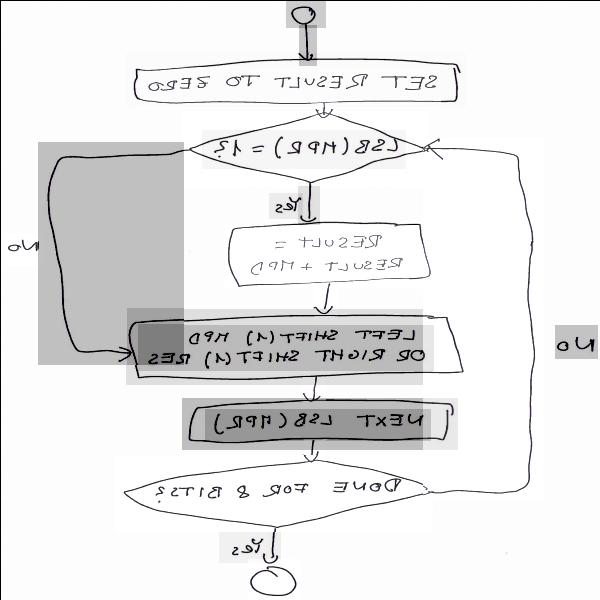 SET RESULT TO ZERO
LSB(MPR) = 1?
Yes
no
RESULT =
RESULT + MPD
LEFT SHIFT(1) MPD
OR RIGHT SHIFT(1) RES
no
NEXT LSB(MPR)
DONE FOR 8 BITS?
Yes